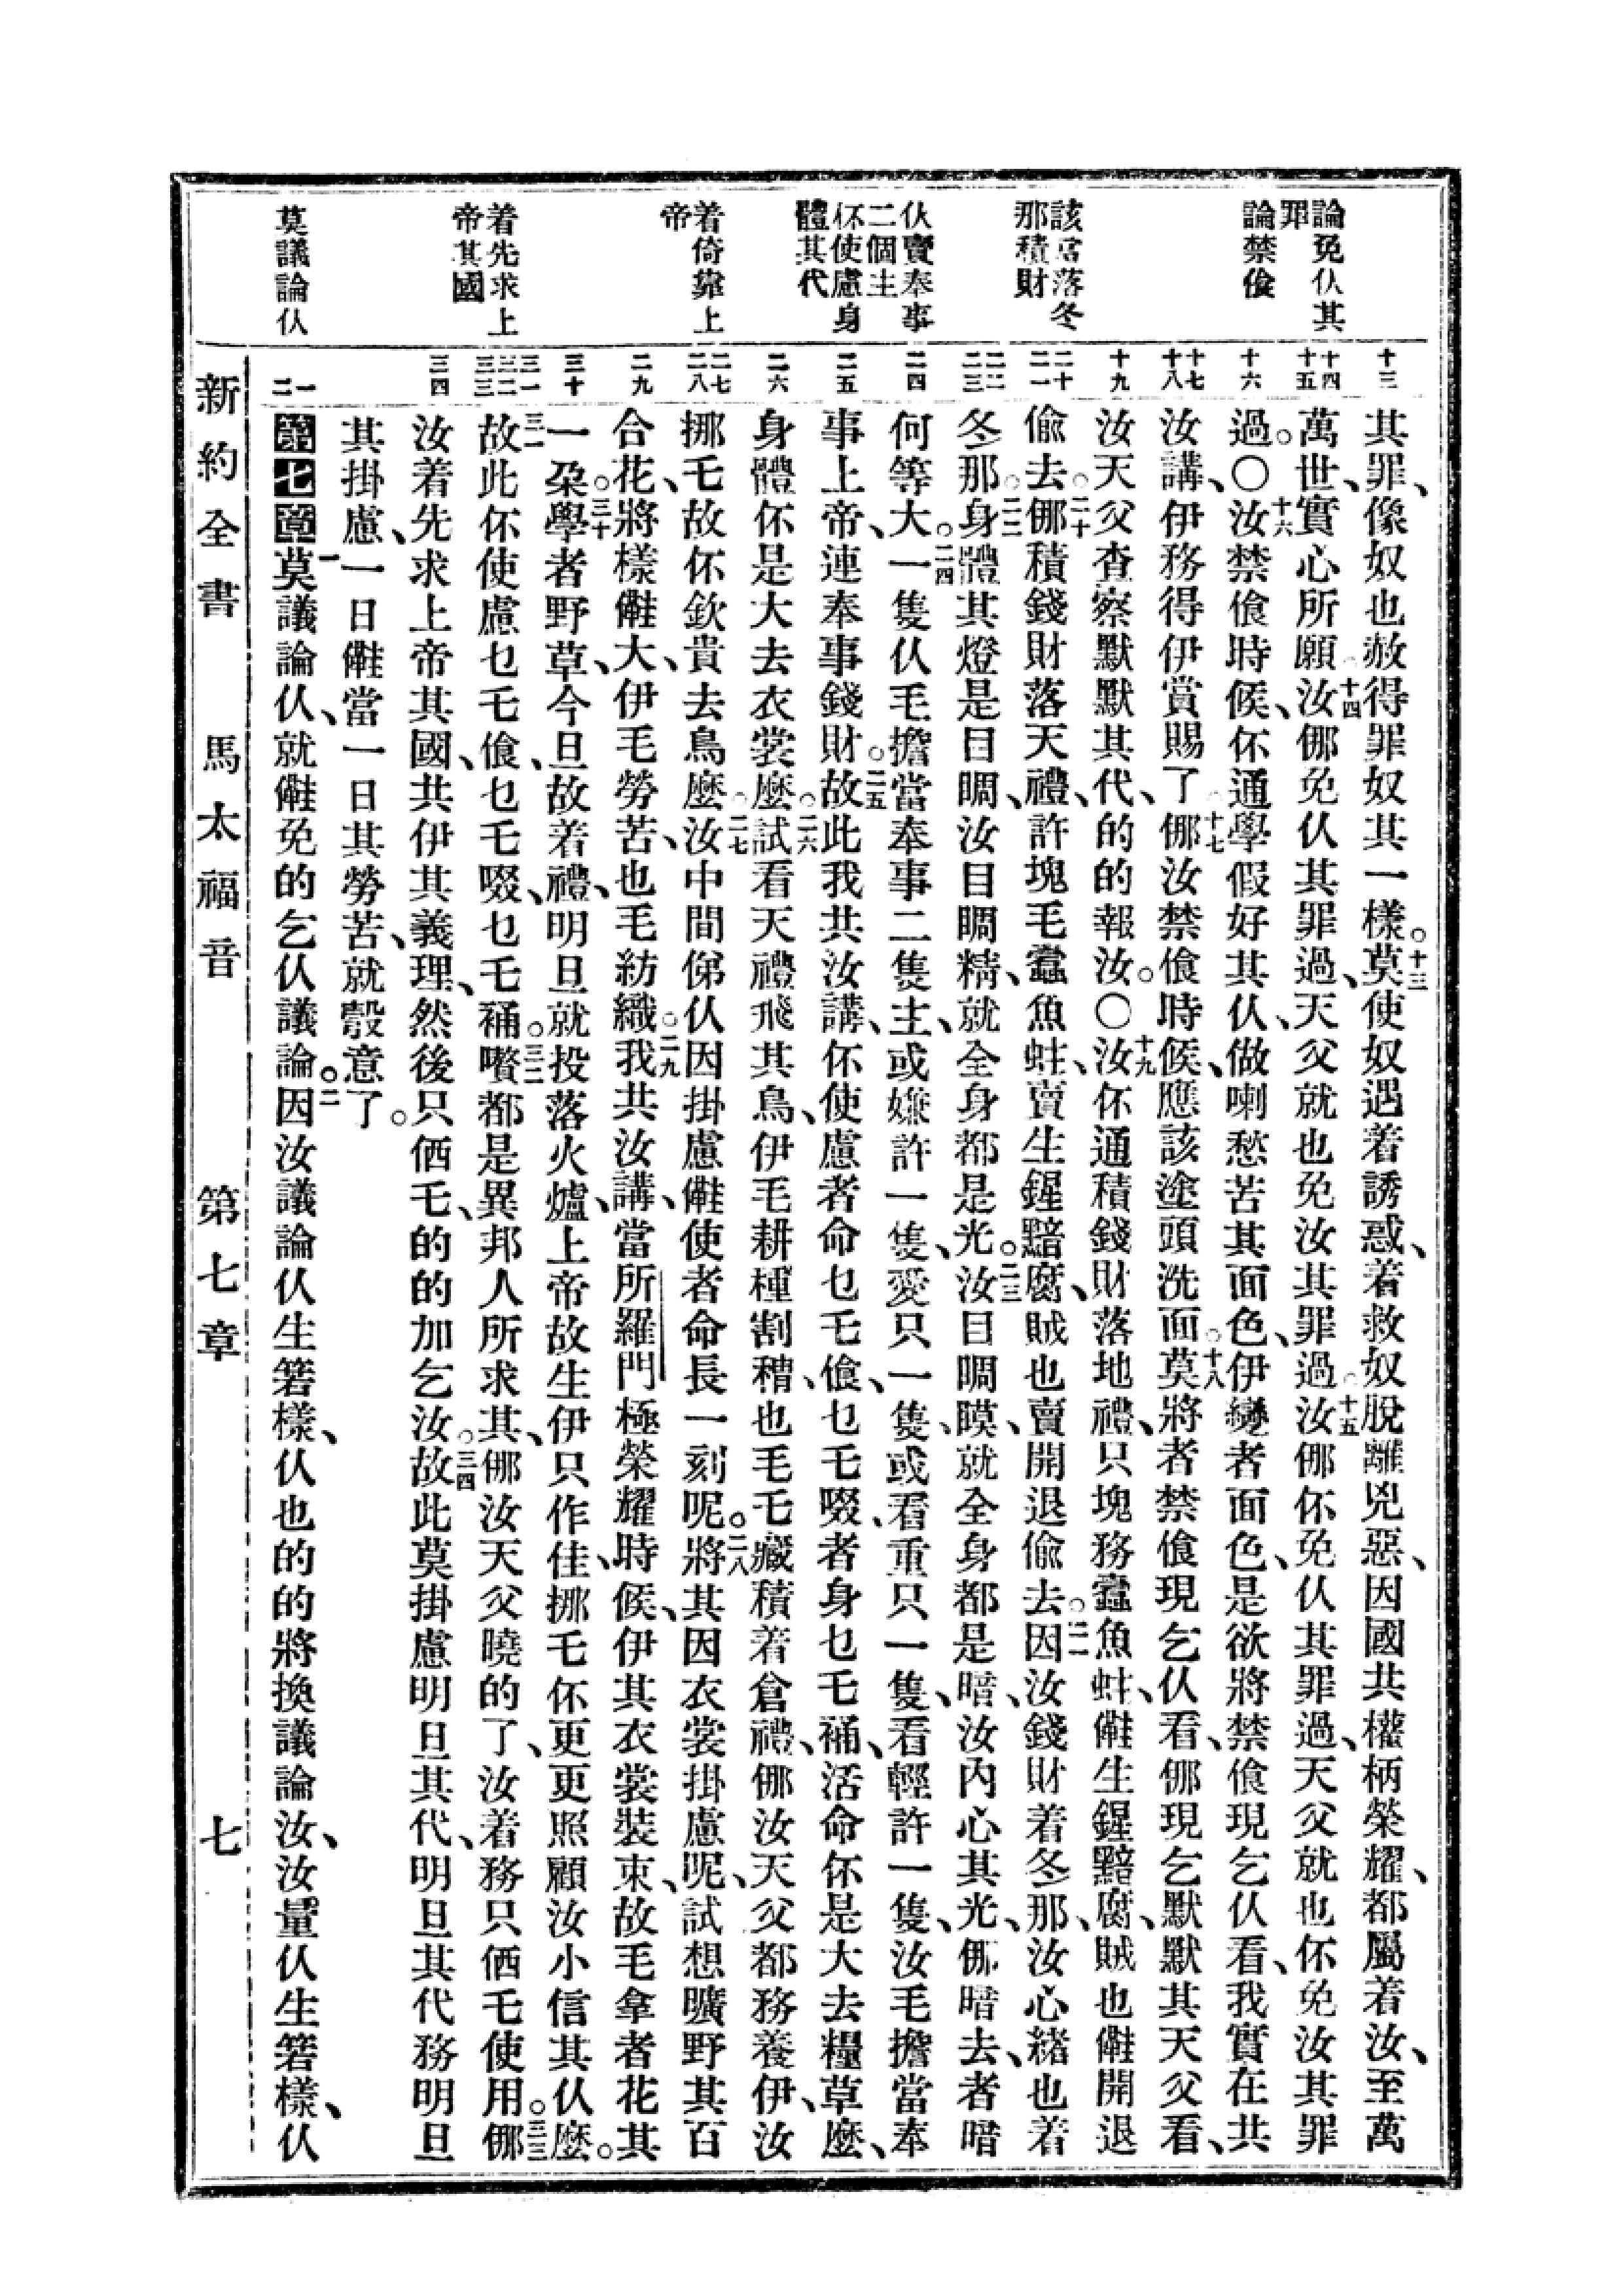 論免仈其罪
論禁飡
該㡳落冬那積財
仈賣奉事二個主
伓使慮身體其代
着倚靠上帝
着先求上帝其國
莫議論仈
十三
十四 十五
十六
十七 十八
十九
二十 二一
二二 二三
二四
二五
二六
二七 二八
二九
三十
三一 三二 三三
三四
一 二
其罪、像奴也赦得罪奴其一樣。十三莫使奴遇着誘惑、着救奴脫離兇惡、因國共權柄榮耀、都屬着汝、至萬
萬世、實心所願。十四汝㑚免仈其罪過、天父就也免汝其罪過。十五汝㑚伓免仈其罪過、天父就也伓免汝其罪
過。〇十六汝禁飡時候、伓通學假好其仈、做喇愁苦其面色、伊變者面色、是欲將禁飡現乞仈看、我實在共
汝講、伊務得伊賞賜了。十七㑚汝禁飡時候、應該塗頭洗面。十八莫將者禁飡現乞仈看、㑚現乞默默其天父看、
汝天父查察默默其代、的的報汝。〇十九汝伓通積錢財落地禮、只塊務蠹魚蛀、生鍟黯腐、賊也開退
偷去。二十㑚積錢財落天禮、許塊毛蠹魚蛀、賣生鍟黯腐、賊也賣開退偷去。二一因汝錢財着冬那、汝心緒也着
冬那。二二身體其燈是目睭、汝目睭精、就全身都是光。二三汝目睭瞙、就全身都是暗、汝內心其光、㑚暗去、者暗
何等大。二四一隻仈毛擔當奉事二隻主、或嫌許一隻、愛只一隻、或看重只一隻、看輕許一隻、汝毛擔當奉
事上帝、連奉事錢財。二五故此我共汝講、伓使慮者命乜乇飡、乜乇啜、者身乜乇䘄、活命伓是大去糧草麼、
身體伓是大去衣裳麼。二六試看天禮飛其鳥、伊毛耕種割穧、也毛乇藏積着倉禮、㑚汝天父都務養伊、汝
挪乇故伓欽貴去鳥麼。二七汝中間㑄仈因掛慮使者命長一刻呢。二八將其因衣裳掛慮呢、試想曠野其百
合花、將樣大、伊毛勞苦、也毛紡織。二九我共汝講、當所羅門極榮耀時候、伊其衣裳裝束、故毛拿者花其
一朶。三十學者野草、今旦故着禮、明旦就投落火爐、上帝故生伊只作佳、挪乇伓更更照顧汝小信其仈麼。
三一故此伓使慮乜乇飡、乜乇啜、乜乇䘄。三二嚽都是異邦人所求其、㑚汝天父曉的了、汝着務只価乇使用。三三㑚
汝着先求上帝其國、共伊其義理、然後只価乇、的的加乞汝。三四故此莫掛慮明旦其代、明旦其代務明旦
其掛慮、一日當一日其勞苦、就彀意了。
第七章一莫議論仈、就免的乞仈議論。二因汝議論仈生箬樣、仈也的的將換議論汝、汝量仈生箬樣、仈
新約全書　馬太福音　第七章　七